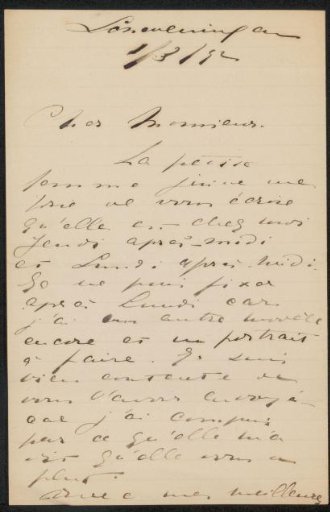 Scheveningen
1/3/92
Cher Monsieur.
La petite
femme juive me
prie de vous écrire
qu'elle est chez moi
Jeudi après-midi
et Lundi après-midi.
Je ne puis fixer
après Lundi car
j'ai un autre modèle
encore et un portrait
à faire. Je suis
bien contente de
vous l'avoir envoyé
car j'ai compris
par ce qu'elle m'a
dit qu'elle vous a
plu.
avec mes meilleures